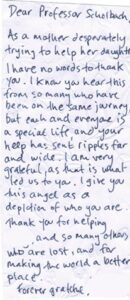 Dear Professor Scholbach
As a mother desperately
trying to help her daughter
I have no words to thank
you. I know you hear this
from so many who have
been on the same journey
but each and everyone is
a special life and your
help has sent ripples far
and wide. I am very
grateful, as that is what
led us to you. I give you
this angel as a
depiction of who you are.
Thank you for helping
and so many others
who are lost, and for
making the world a better
place.
Forever grateful